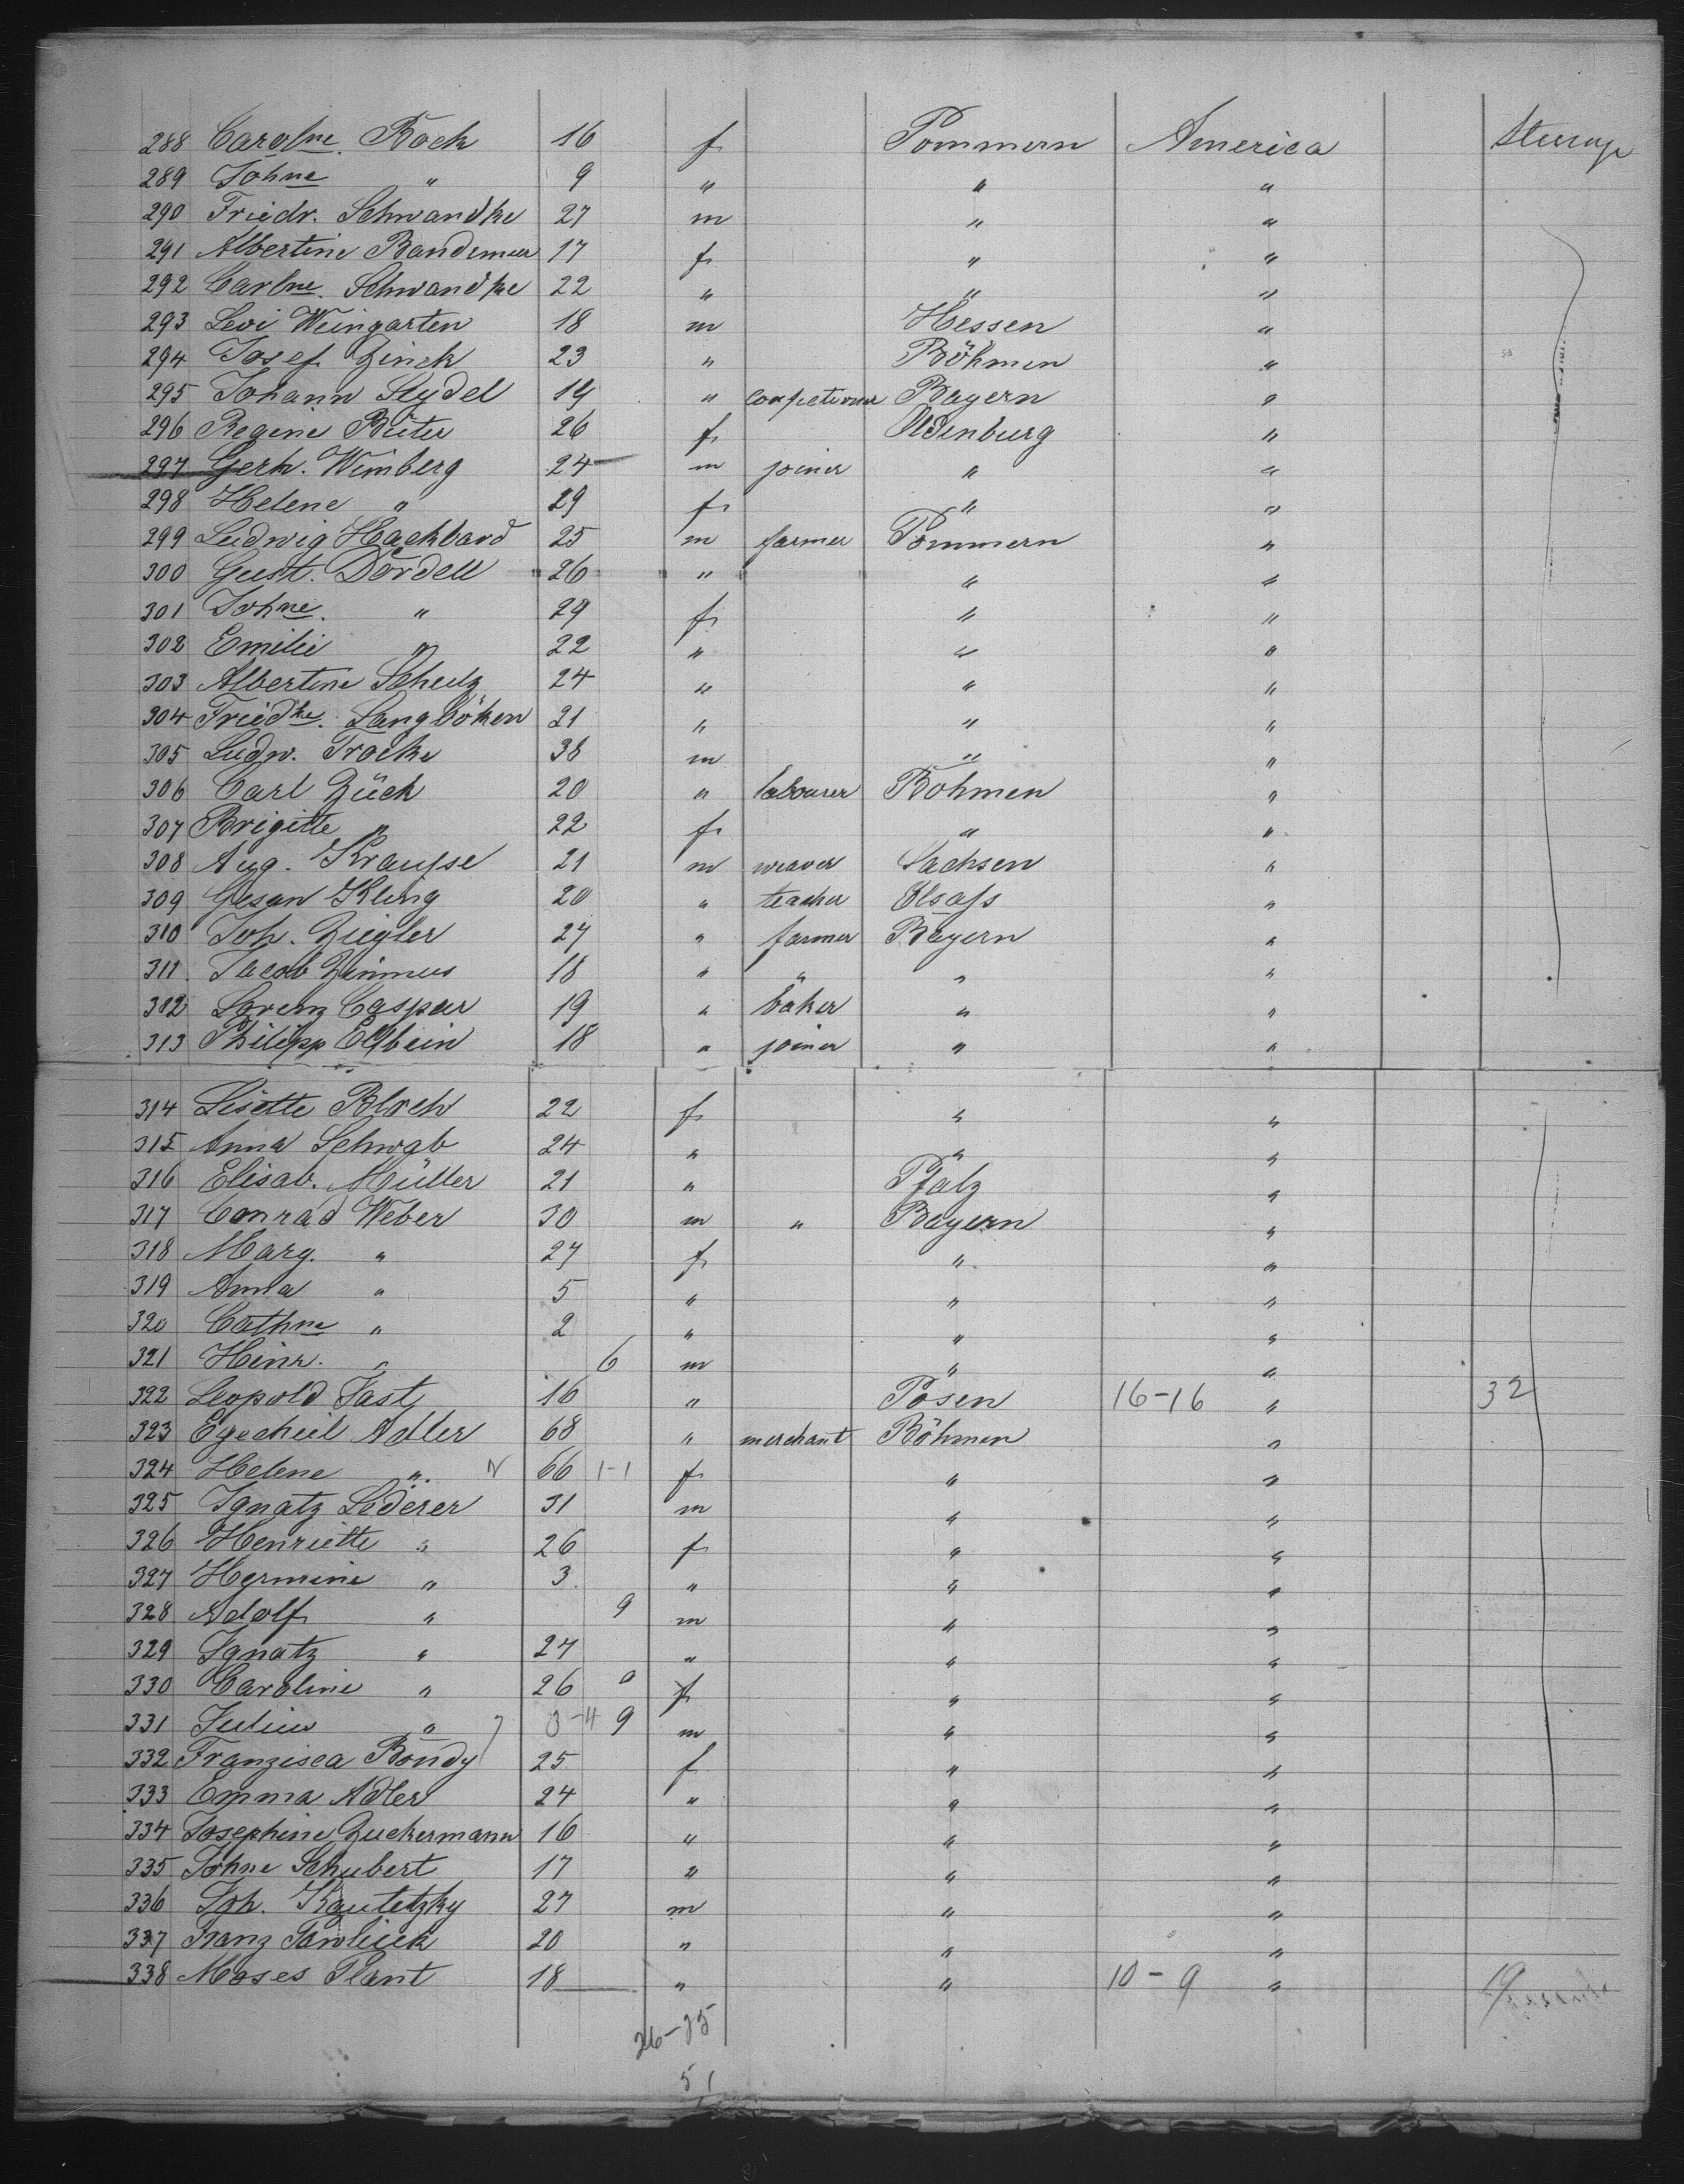 288 Carolne. Bock 16 f Pommern America Steerage
289 Johne " 9 " " "
290 Friedr. Schwandke 27 m " "
291 Albertine Bandemer 17 f " "
292 Carlne. Schwandke 22 " " "
293 Levi Weingarten 18 m Hessen "
294 Josef Zinek 23 " Böhmen "
295 Johann Seydel 19 " Bayern "
296 Regine Büter 26 f Oldenburg "
297 Gerh. Wimberg 24 m joiner " "
298 Helene " 29 f " "
299 Ludwig Hackbard 25 m farmer Pommern "
300 Gust. Dordell 26 " " "
301 Johne. " 29 f " "
302 Emilie " 22 " " "
303 Albertine Schulz 24 " " "
304 Friedke. Langböken 21 " " "
305 Ludw. Tracke 38 m " "
306 Carl Zück 20 " labourer Böhmen "
307 Brigitte " 22 f " "
308 Aug. Kraufse 21 m weaver Sachsen "
309 Kling 20 " teacher Elsafs "
310 Joh. Ziegler 27 " farmer Bayern "
311 Jacob Zimmus 18 " " " "
312 Lorenz Caspar 19 " baker " "
313 Philipp Ellbein 18 " joiner " "
314 Lisette Bloch 22 f " "
315 Anna Schwab 24 " " "
316 Elisab. Müller 21 " Pfalz "
317 Conrad Weber 30 m " Bayern "
318 Marg. " 27 f " "
319 Anna " 5 " " "
320 Cathne " 2 " " "
321 Heinr. " 6 m " "
322 Leopold Jast 16 " Posen 16-16 " 32
323 Ezechiel Adler 68 " merchant Böhmen "
324 Helene " 66 1-1 f " "
325 Ignatz Lederer 31 m " "
326 Henriette " 26 f " "
327 Hermine " 3 " " "
328 Adolf " 9 m " "
329 Ignatz " 27 " " "
330 Caroline " 26 f " "
331 Julius " 3-4 9 m " "
332 Franzisca Bondy 25 f " "
333 Emma Adler 24 " " "
334 Josephine Zuckermann 16 " " "
335 Johne Schubert 17 " " "
336 Joh. Kautetzky 27 m " "
337 Franz Pawlicek 20 " " "
338 Moses Plant 18 " " 10-9 " 19
26-25
51